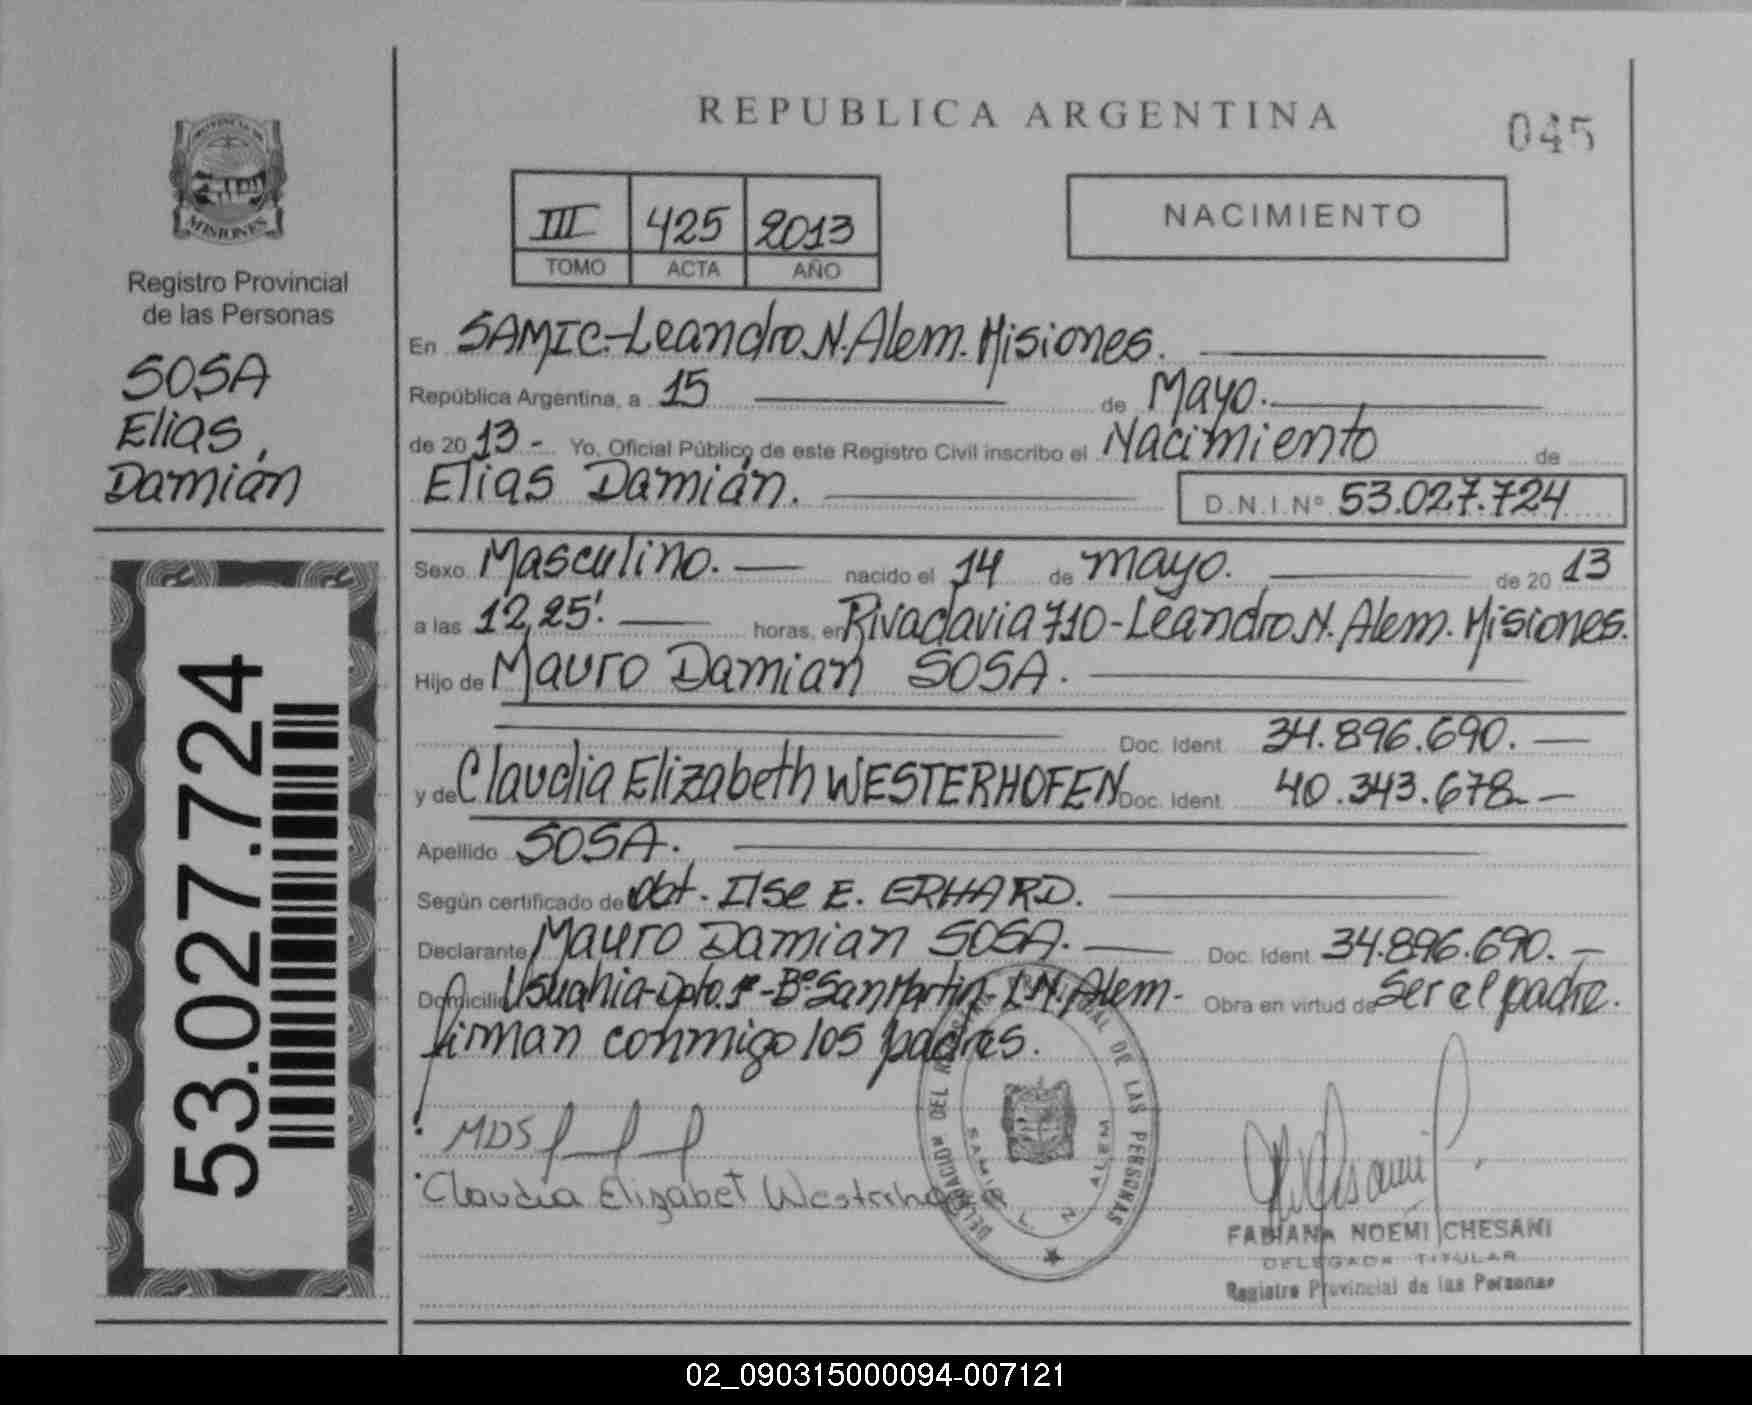 REPUBLICA ARGENTINA
045
PROVINCIA DE
MISIONES
Registro Provincial
de las Personas
SOSA
Elias,
Damián
53.027.724
III 425 2013
TOMO ACTA AÑO
NACIMIENTO
En SAMIC-Leandro N. Alem. Misiones.
República Argentina, a 15 de Mayo.
de 2013- Yo, Oficial Público de este Registro Civil inscribo el Nacimiento de
Elias Damián. D.N.I.Nº 53.027.724
Sexo Masculino. nacido el 14 de mayo. de 2013
a las 12,25'. horas, en Rivadavia 710-Leandro N. Alem. Misiones.
Hijo de Mauro Damian SOSA.
Doc. Ident. 34.896.690.
y de Claudia Elizabeth WESTERHOFEN Doc. Ident. 40.343.678
Apellido SOSA.
Según certificado de Obt. Ilse E. ERHARD.
Declarante Mauro Damian SOSA. Doc. Ident. 34.896.690.
Domicilio Usuahia-Dpto. 1º-Bº San Martin L.N. Alem- Obra en virtud de Ser el padre.
firman conmigo los padres.
MDS
Claudia Elizabet
DELEGACION DEL REGISTRO PROVINCIAL DE LAS PERSONAS
SAMIC L. N. ALEM
FABIANA NOEMI CHESANI
DELEGADA TITULAR
Registro Provincial de las Personas
02_090315000094-007121